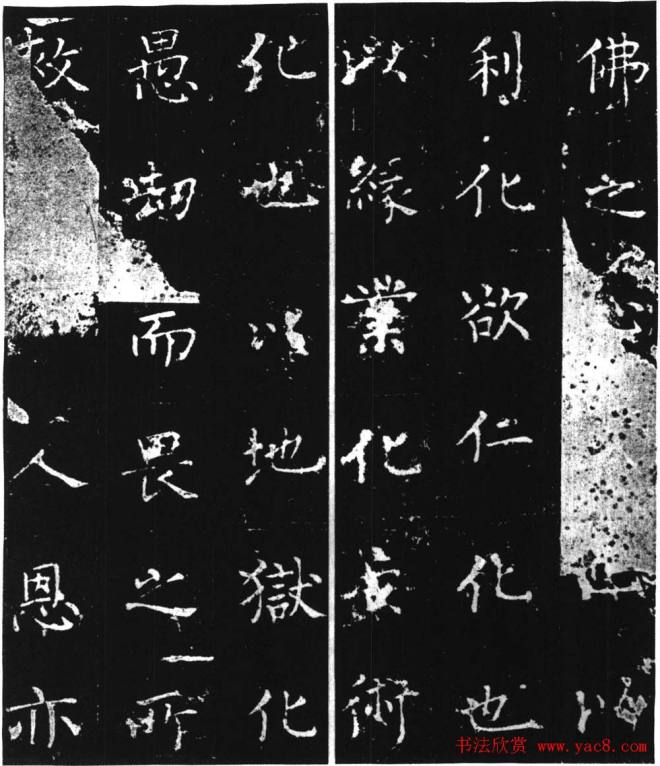 佛之心也以
利化欲仁化也
以緣業化妄術
化也以地獄化
愚劫而畏之所
救人恩亦
书法欣赏 www.yac8.com